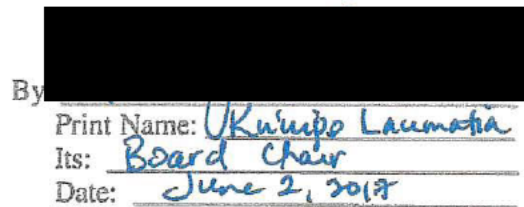 By
Print Name: Laumatia
Its: Board Chair
Date: June 2, 2017